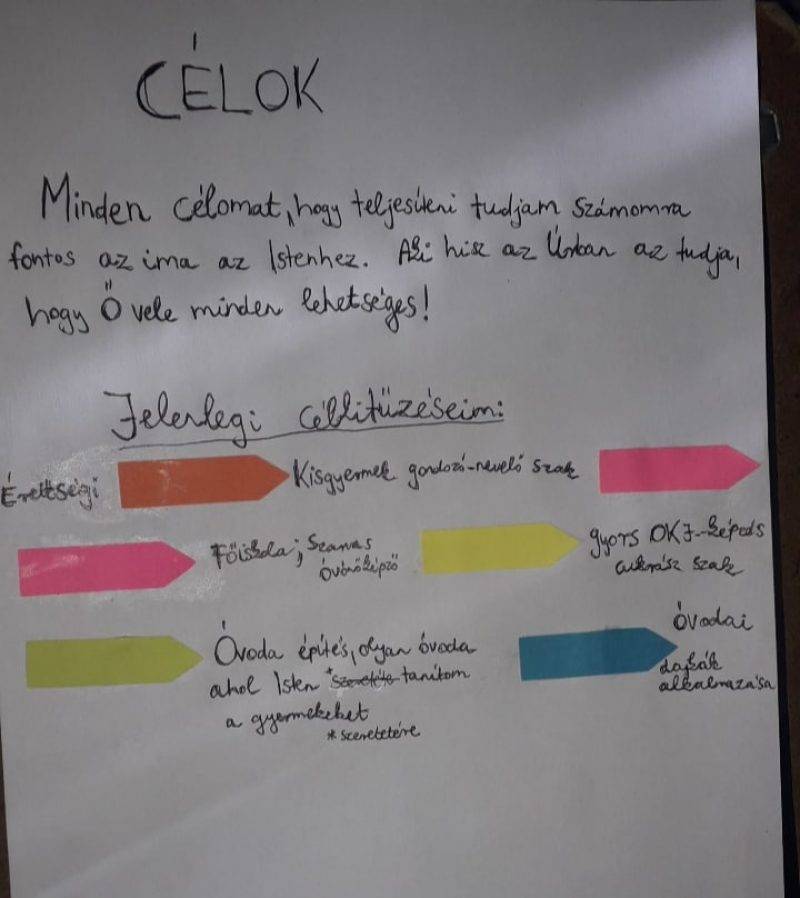 CÉLOK
Minden célomat, hogy teljesíteni tudjam számomra
fontos az ima az Istenhez. Aki hisz az Úrban az tudja,
hogy Ő vele minden lehetséges!
Jelenlegi célkitűzéseim:
Érettségi
Kisgyermek gondozó-nevelő szak
Főiskola; Szarvas
óvónőképző
gyors OKJ-képzés
cukrász szak
Óvoda építés, olyan óvoda
ahol Isten * szeretete tanítom
a gyermekeket
* szeretetére
Óvodai
dajkák
alkalmazása